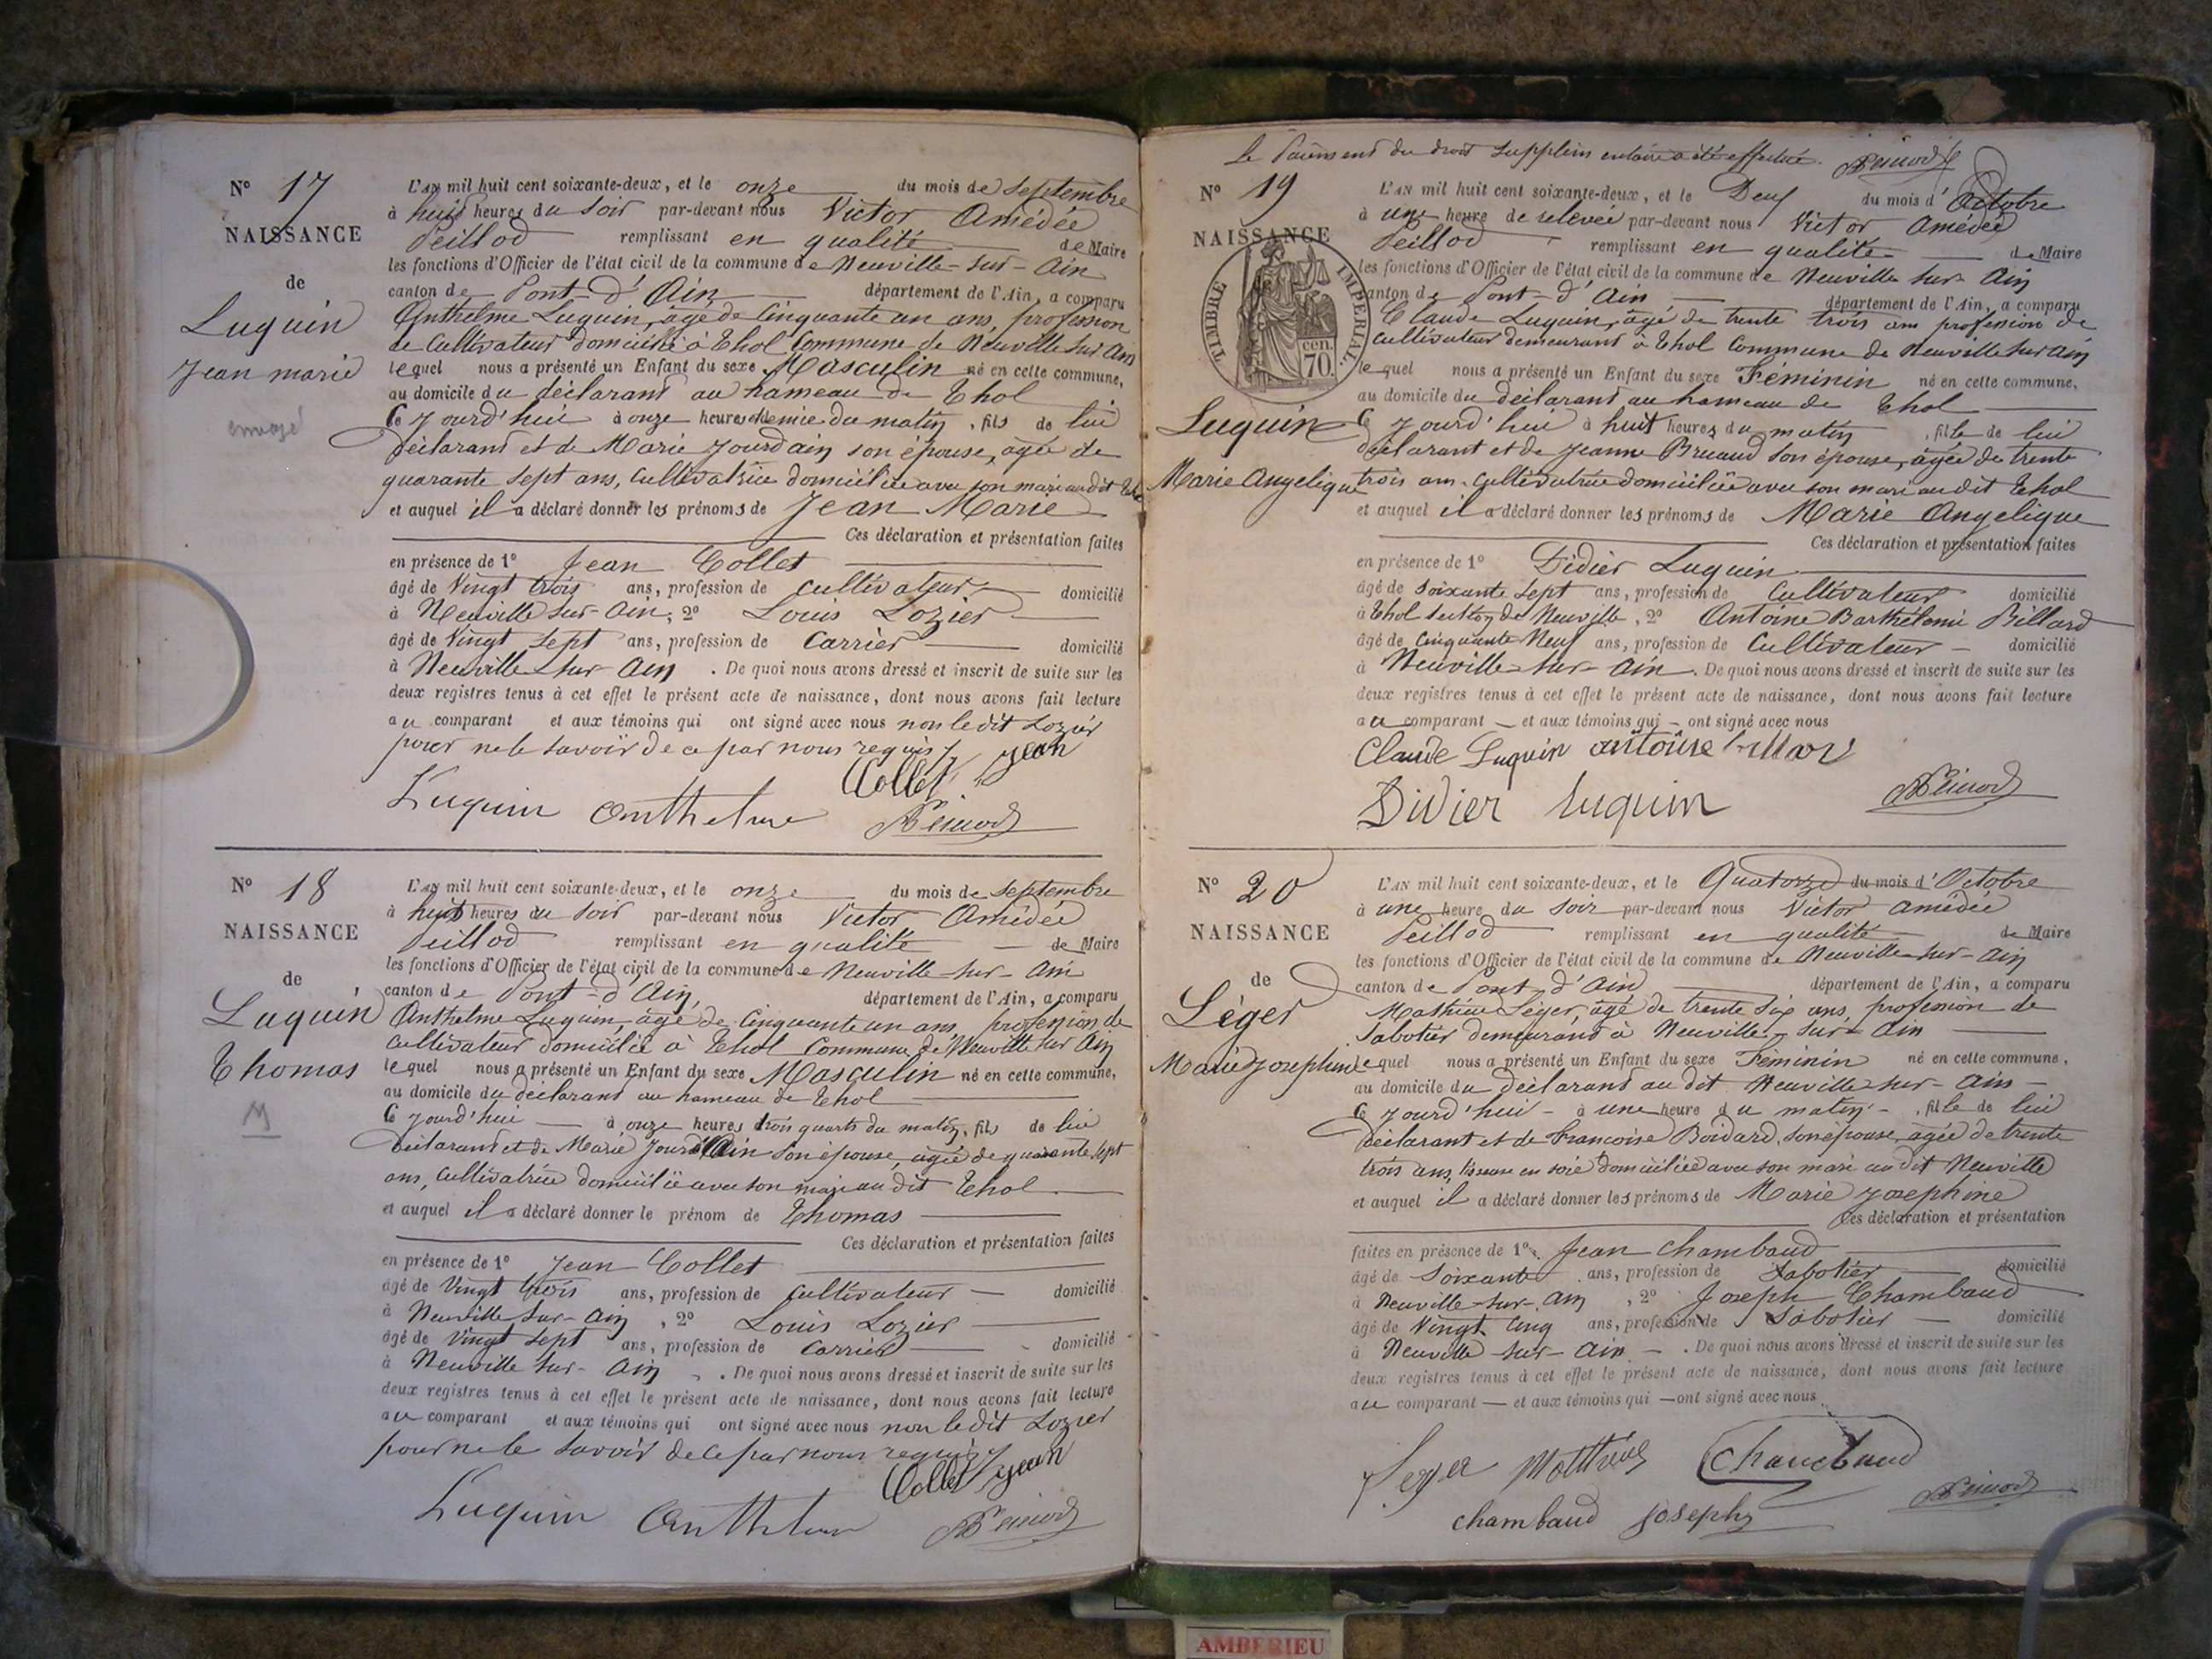 N° 17
NAISSANCE
de
Luquin
Jean marie
envoyé
L'AN mil huit cent soixante-deux, et le onze du mois de Septembre
à huit heures du Soir par-devant nous Victor Amédée
Peillod remplissant en qualité de Maire
les fonctions d'Officier de l'état civil de la commune de Neuville-Sur-Ain
canton de Pont-d'Ain département de l'Ain, a comparu
Anthelme Luquin, agé de Cinquante un ans, profession
de Cultivateur domicilié à Thol Commune de Neuville Sur Ain
lequel nous a présenté un Enfant du sexe Masculin né en cette commune,
au domicile du déclarant au hameau de Thol
Ce jourd'hui à onze heures et demie du matin, fils de lui
déclarant et de Marie Jourdain son épouse, agée de
quarante Sept ans, Cultivatrice domiciliée avec son mari audit Thol
et auquel il a déclaré donner les prénoms de Jean Marie
Ces déclaration et présentation faites
en présence de 1° Jean Collet
âgé de Vingt trois ans, profession de cultivateur domicilié
à Neuville Sur-Ain, 2° Louis Lozier
âgé de Vingt Sept ans, profession de Carrier domicilié
à Neuville Sur Ain. De quoi nous avons dressé et inscrit de suite sur les
deux registres tenus à cet effet le présent acte de naissance, dont nous avons fait lecture
au comparant et aux témoins qui ont signé avec nous non le dit Lozier
pour ne le Savoir de ce par nous requis
Collet Jean
Luquin Anthelme
N° 18
NAISSANCE
de
Luquin
Thomas
M
L'AN mil huit cent soixante-deux, et le onze du mois de Septembre
à huit heures du Soir par-devant nous Victor Amédée
Peillod remplissant en qualité de Maire
les fonctions d'Officier de l'état civil de la commune de Neuville-Sur-Ain
canton de Pont-d'Ain, département de l'Ain, a comparu
Anthelme Luquin, agé de Cinquante un ans, profession de
Cultivateur domicilié à Thol Commune de Neuville Sur Ain
lequel nous a présenté un Enfant du sexe Masculin né en cette commune,
au domicile du déclarant au hameau de Thol
Ce jourd'hui à onze heures trois quarts du matin, fils de lui
déclarant et de Marie Jourdain Son épouse, agée de quarante Sept
ans, Cultivatrice domiciliée avec son mari au dit Thol
et auquel il a déclaré donner le prénom de Thomas
Ces déclaration et présentation faites
en présence de 1° Jean Collet
âgé de Vingt trois ans, profession de Cultivateur domicilié
à Neuville Sur-Ain, 2° Louis Lozier
âgé de Vingt Sept ans, profession de Carrier domicilié
à Neuville Sur-Ain. De quoi nous avons dressé et inscrit de suite sur les
deux registres tenus à cet effet le présent acte de naissance, dont nous avons fait lecture
au comparant et aux témoins qui ont signé avec nous non le dit Lozier
pour ne le Savoir de ce par nous requis
Collet Jean
Luquin Anthelme
Le Paiement du droit Supplémentaire a été effectué.
N° 19
NAISSANCE
TIMBRE IMPERIAL
70 cen.
Luquin
Marie Angelique
L'AN mil huit cent soixante-deux, et le Deux du mois d'Octobre
à une heure de relevée par-devant nous Victor Amédée
Peillod remplissant en qualité de Maire
les fonctions d'Officier de l'état civil de la commune de Neuville Sur Ain
canton de Pont-d'Ain département de l'Ain, a comparu
Claude Luquin, agé de trente trois ans profession de
Cultivateur demeurant à Thol Commune de Neuville Sur Ain
lequel nous a présenté un Enfant du sexe Féminin né en cette commune,
au domicile du déclarant au hameau de Thol
Ce jourd'hui à huit heures du matin, fille de lui
déclarant et de Jeanne Bruaud Son épouse, agée de trente
trois ans, Cultivatrice domiciliée avec son mari au dit Thol
et auquel il a déclaré donner les prénoms de Marie Angelique
Ces déclaration et présentation faites
en présence de 1° Didier Luquin
âgé de Soixante Sept ans, profession de Cultivateur domicilié
à Thol Section de Neuville, 2° Antoine Barthélemi Billard
âgé de Cinquante Neuf ans, profession de Cultivateur domicilié
à Neuville-Sur-Ain. De quoi nous avons dressé et inscrit de suite sur les
deux registres tenus à cet effet le présent acte de naissance, dont nous avons fait lecture
au comparant et aux témoins qui ont signé avec nous
Claude Luquin antoine
Didier luquin
N° 20
NAISSANCE
de
Léger
Marie Josephine
L'AN mil huit cent soixante-deux, et le Quatorze du mois d'Octobre
à une heure du Soir par-devant nous Victor Amédée
Peillod remplissant en qualité de Maire
les fonctions d'Officier de l'état civil de la commune de Neuville-Sur-Ain
canton de Pont d'Ain département de l'Ain, a comparu
Mathieu Léger, agé de trente Six ans, profession de
Sabotier demeurant à Neuville-Sur-Ain
lequel nous a présenté un Enfant du sexe Féminin né en cette commune,
au domicile du déclarant au dit Neuville-Sur-Ain
Ce jourd'hui à une heure du matin, fille de lui
déclarant et de Francoise Boidard, son épouse, agée de trente
trois ans, tisseuse en soie domiciliée avec son mari au dit Neuville
et auquel il a déclaré donner les prénoms de Marie Josephine
Ces déclaration et présentation
faites en présence de 1° Jean Chambaud
âgé de Soixante ans, profession de Sabotier domicilié
à Neuville-Sur-Ain, 2° Joseph Chambaud
âgé de Vingt Cinq ans, profession de Sabotier domicilié
à Neuville-Sur-Ain. De quoi nous avons dressé et inscrit de suite sur les
deux registres tenus à cet effet le présent acte de naissance, dont nous avons fait lecture
au comparant et aux témoins qui ont signé avec nous
Chambaud
chambaud joseph
AMBERIEU